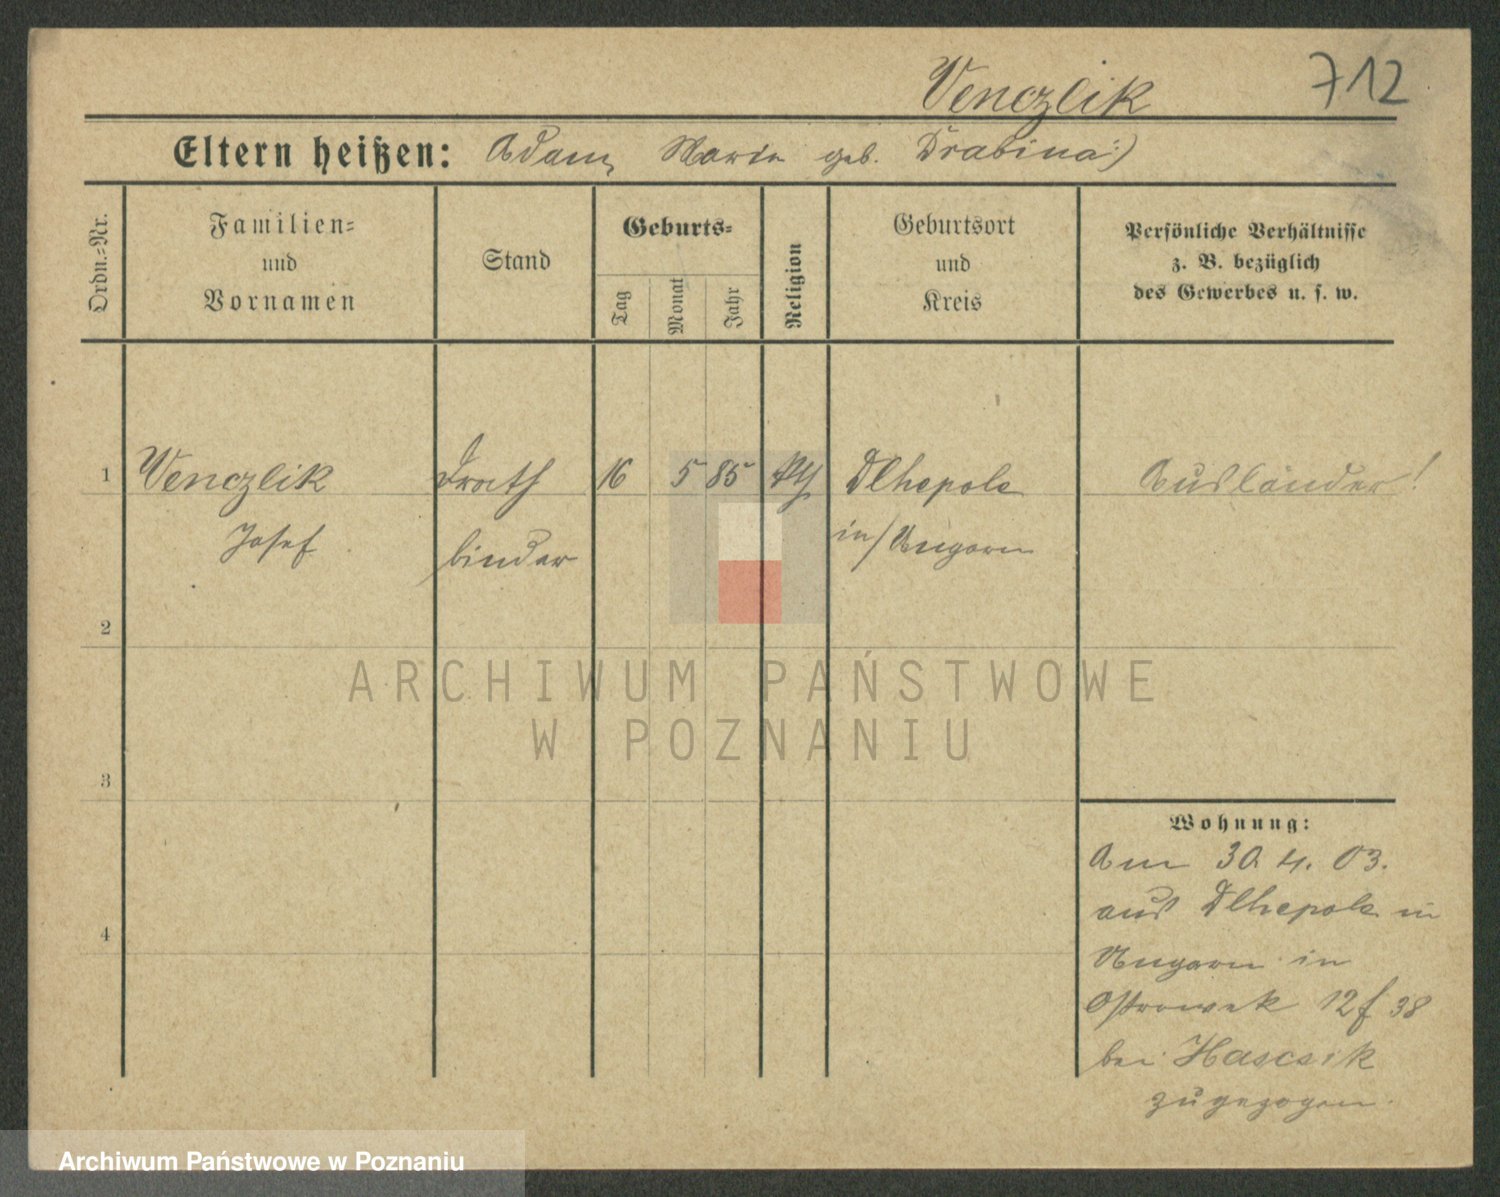 Venczlik 712
Eltern heißen: Adam, Marie geb. Drabina:)
Ordn.=Nr.
Familien=
und
Vornamen
Stand
Geburts=
Tag
Monat
Jahr
Religion
Geburtsort
und
Kreis
Persönliche Verhältnisse
z. B. bezüglich
des Gewerbes u. s. w.
1 Venczlik Drath 16 5 85 Dlhepole Ausländer!
Josef binder in/Ungarn
2
3
4
Wohnung:
Am 30. 4. 03.
aus Dlhepole in
Ungarn in
Ostrowek 12 f 38
bei Hascsik
zugezogen.
ARCHIWUM PAŃSTWOWE
W POZNANIU
Archiwum Państwowe w Poznaniu